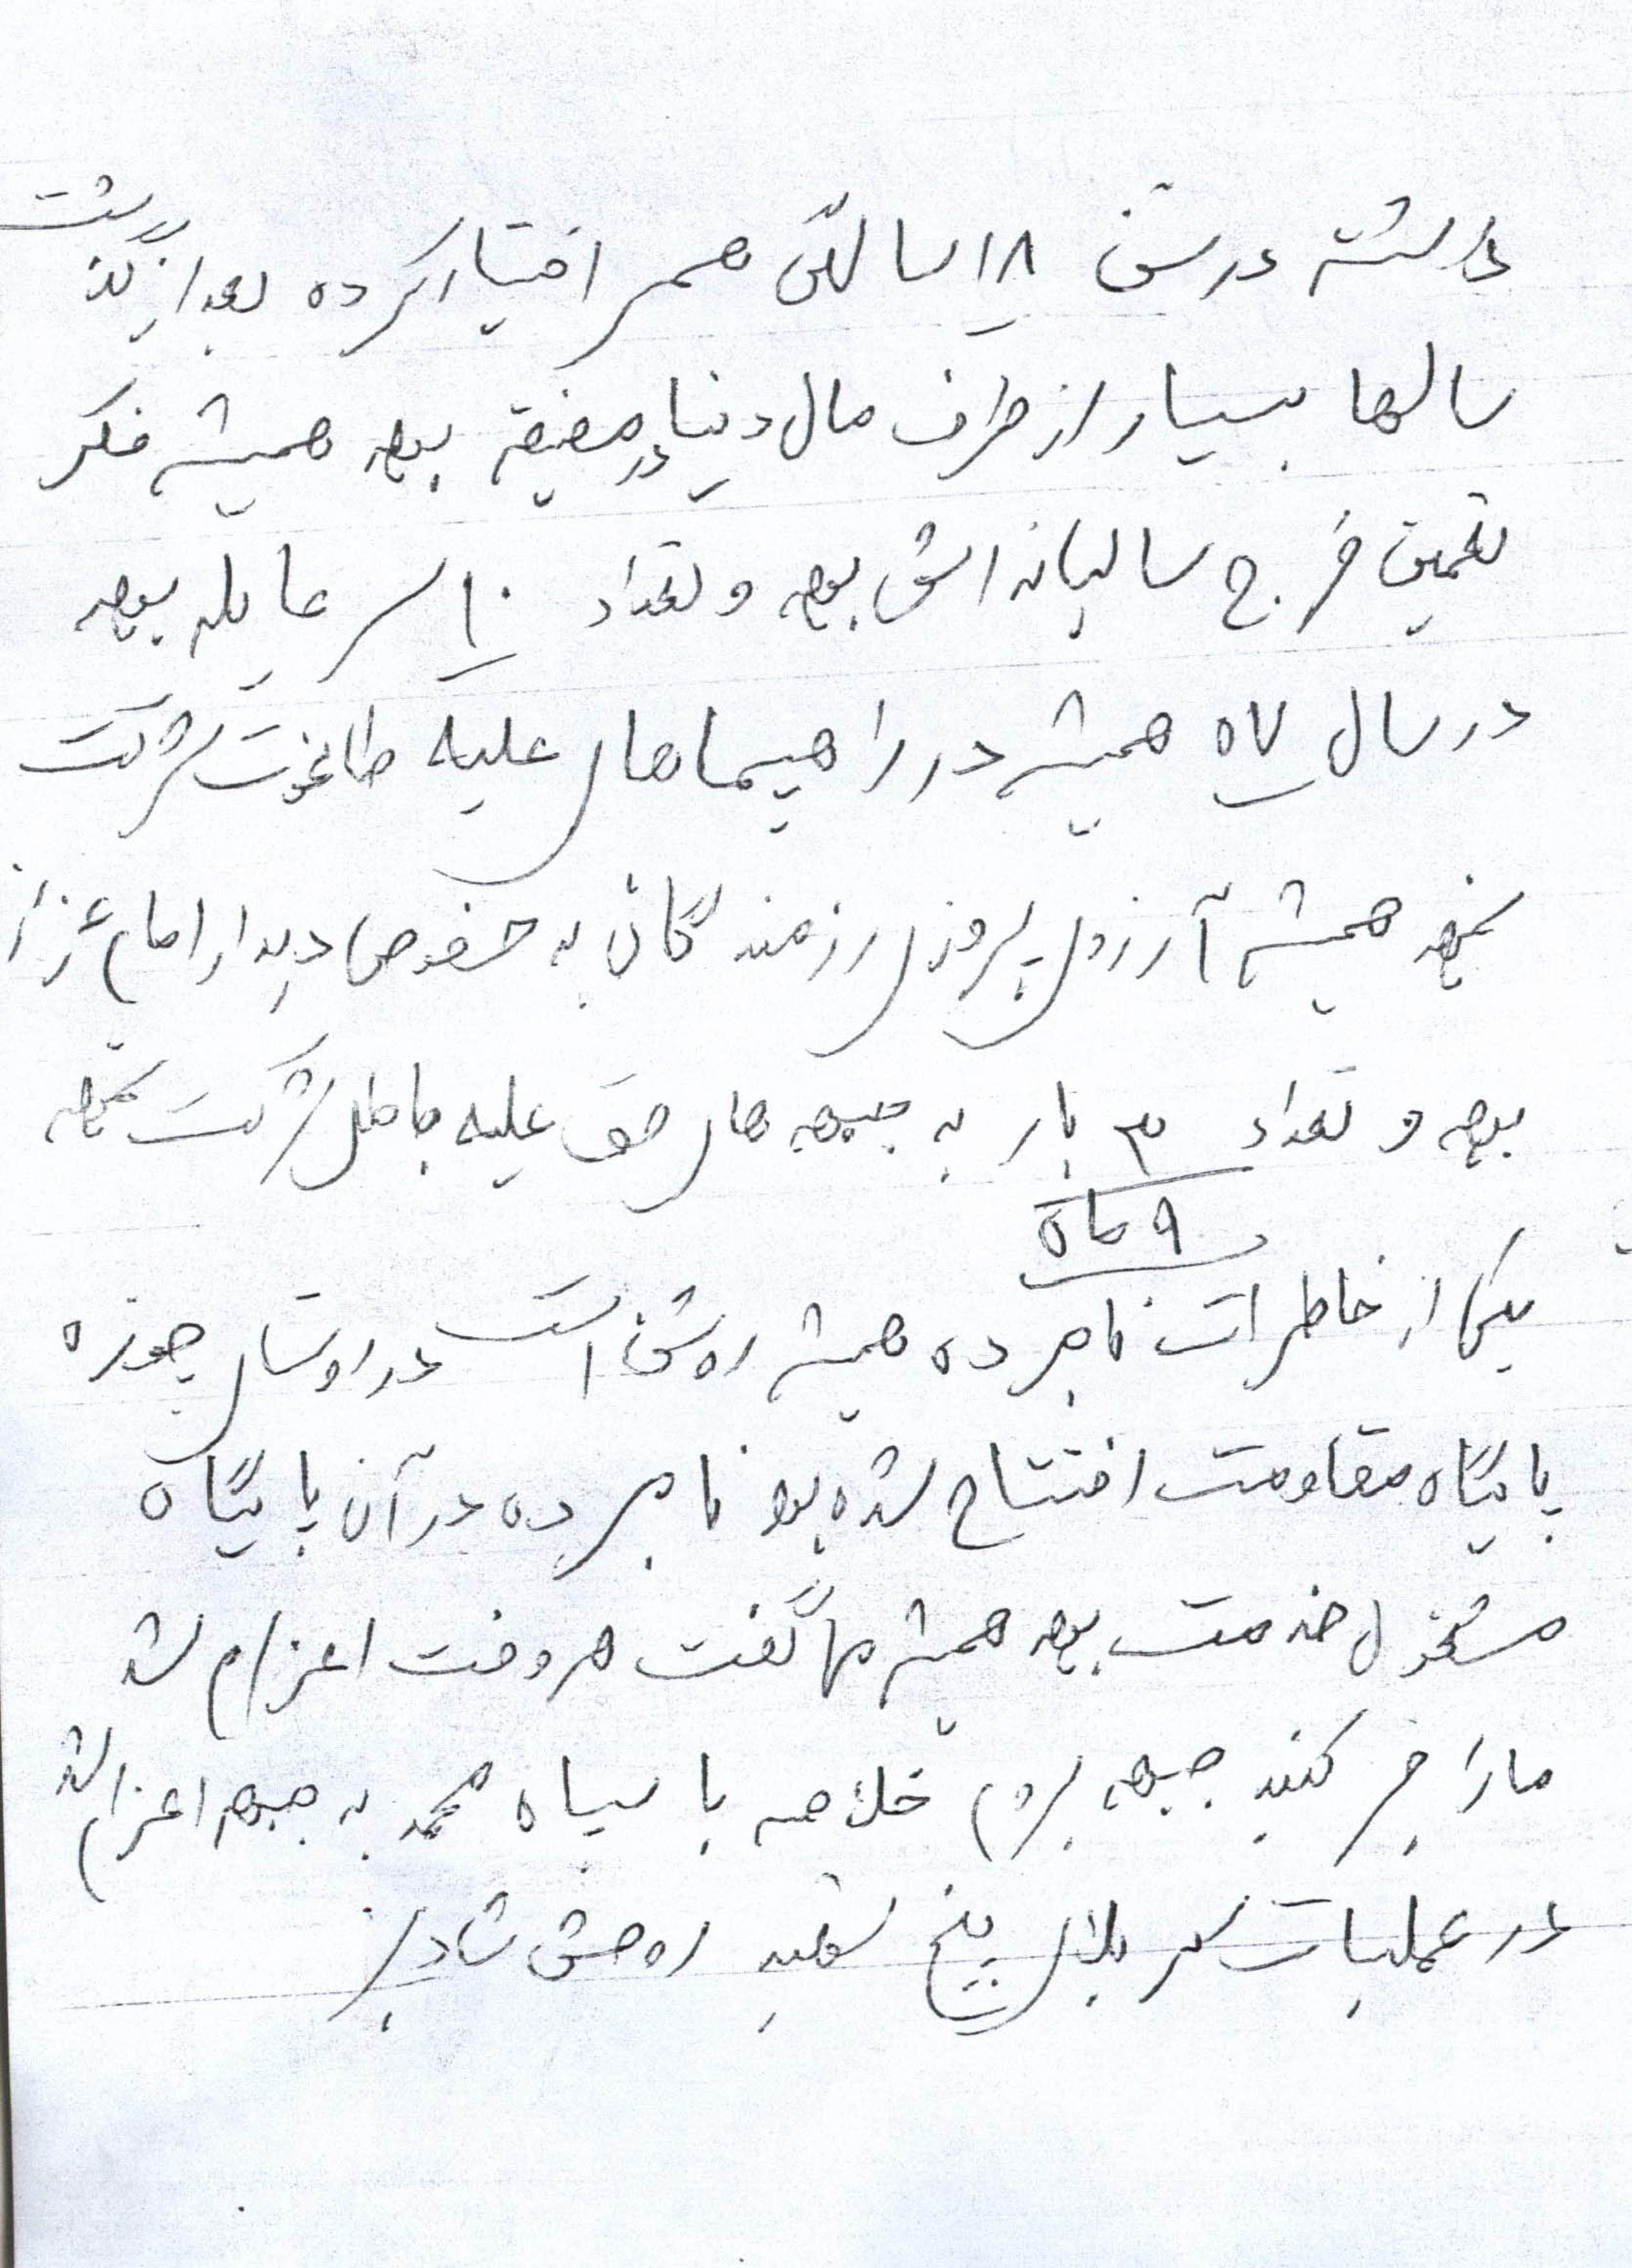 داشته در سن ۱۸ سالگی همسر اختیار کرده بعد از گذشت
سالها بسیار از طرف مال دنیا در مضیقه بوده همیشه فکر
تعمین خرج سالیانه اش بوده و تعداد ۱۰ سر عایله بوده
در سال ۵۷ همیشه در راهپیماهای علیه طاغوت شرکت
نموده همیشه آرزوی پیروزی رزمندگان به خصوص دیدار امام عزیز را
بوده و تعداد ۳ بار به جبهه های حق علیه باطل شرکت نموده
۹ ماه
یکی از خاطرات نامبرده همیشه روشن است در روستای جوزه
پایگاه مقاومت افتتاح شده بود نامبرده در آن پایگاه
مشغول خدمت بوده همیشه می گفت هر وقت اعزام شد
ما را خبر کنید جبهه بروم خلاصه با سپاه محمد به جبهه اعزام شد
در عملیات کربلای پنج شهید روحش شاد